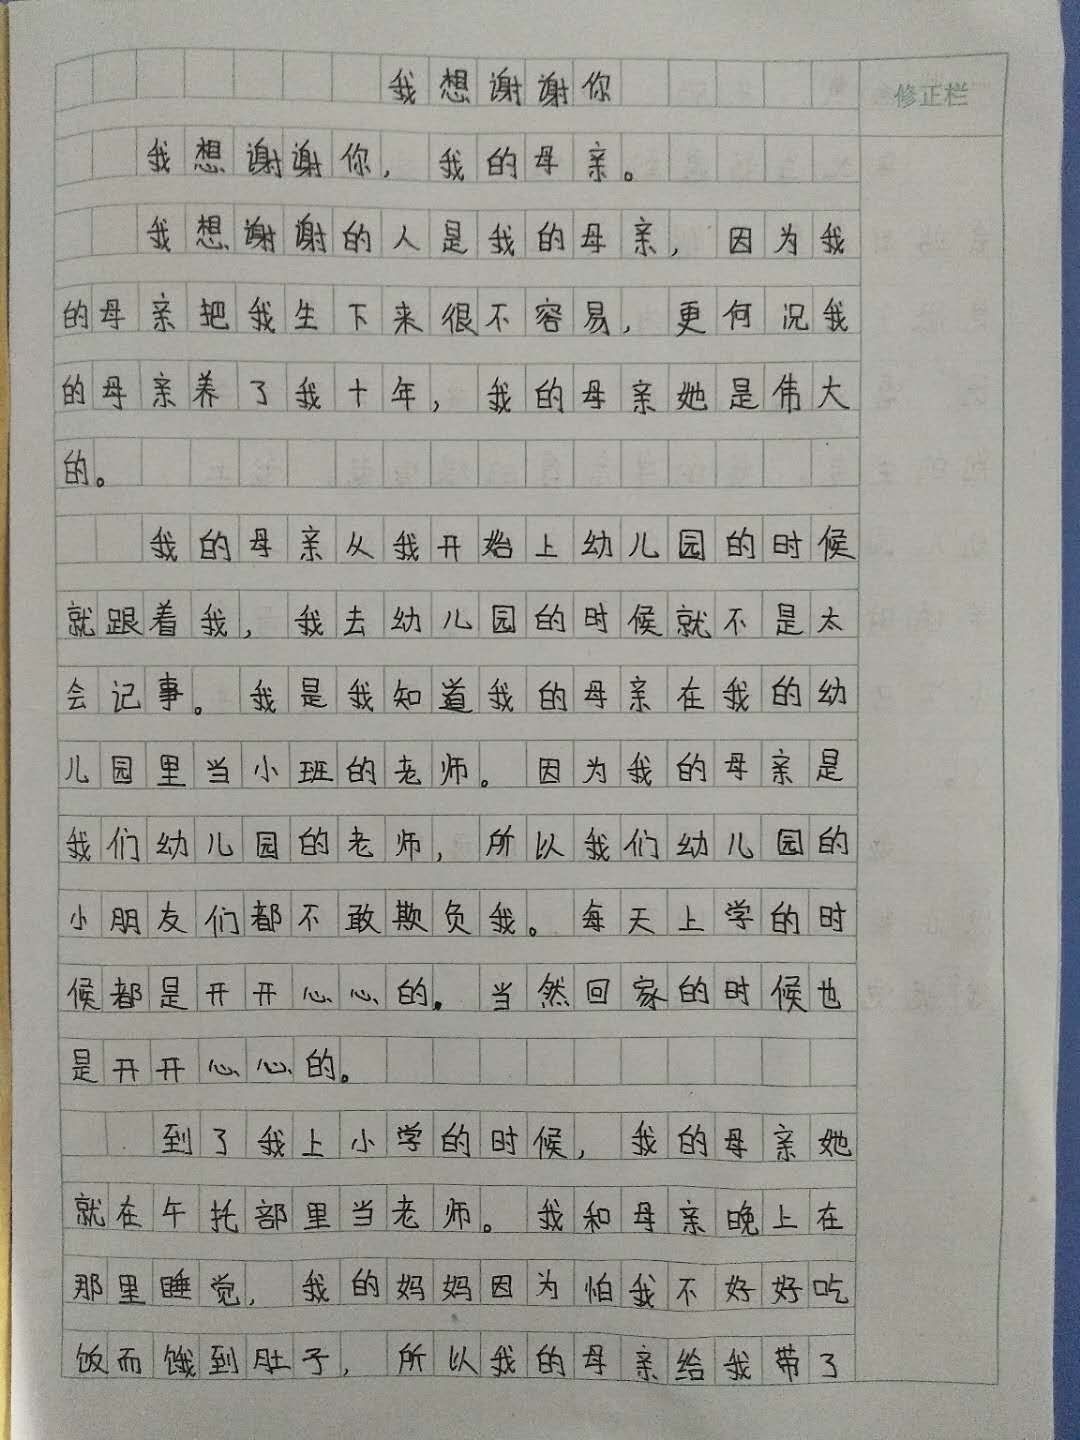 我想谢谢你
修正栏
我想谢谢你，我的母亲。
我想谢谢的人是我的母亲，因为我
的母亲把我生下来很不容易，更何况我
的母亲养了我十年，我的母亲她是伟大
的。
我的母亲从我开始上幼儿园的时候
就跟着我，我去幼儿园的时候就不是太
会记事。我是我知道我的母亲在我的幼
儿园里当小班的老师。因为我的母亲是
我们幼儿园的老师，所以我们幼儿园的
小朋友们都不敢欺负我。每天上学的时
候都是开开心心的。当然回家的时候也
是开开心心的。
到了我上小学的时候，我的母亲她
就在午托部里当老师。我和母亲晚上在
那里睡觉，我的妈妈因为怕我不好好吃
饭而饿到肚子，所以我的母亲给我带了